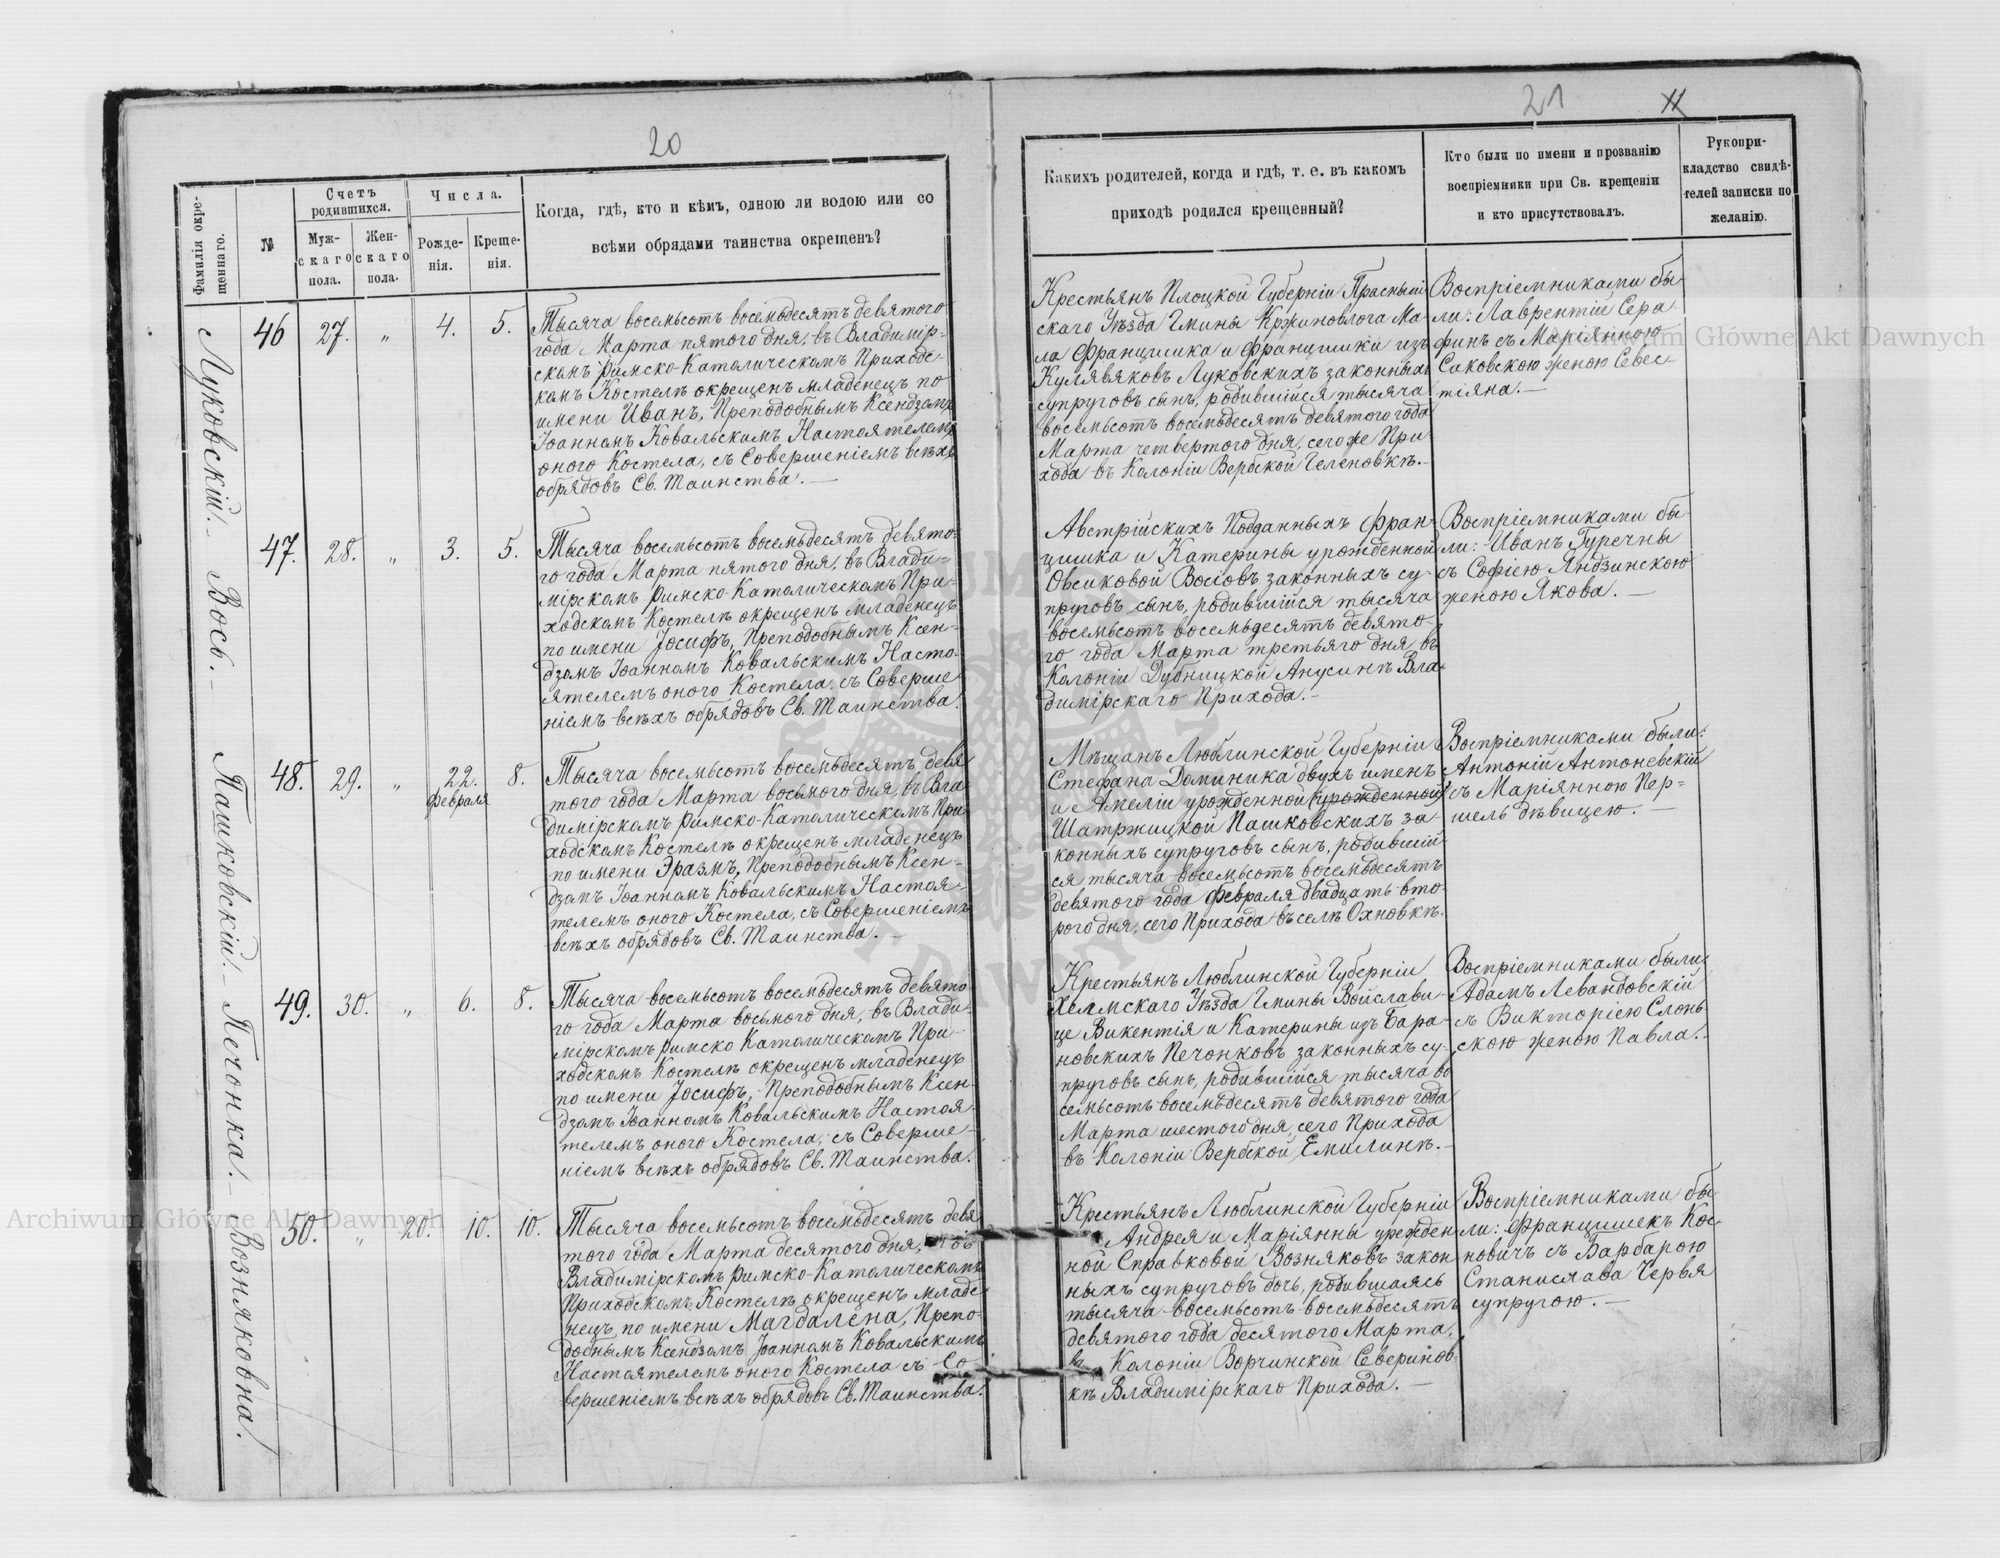 20
Фамилія окре-
щеннаго.
№
Счетъ
родившихся.
Муж-
скаго
пола.
Жен-
скаго
пола.
Числа.
Рожде-
нія.
Креще-
нія.
Когда, гдѣ, кто и кѣмъ, одною ли водою или со
всѣми обрядами таинства окрещенъ?
Луковскій.–
46
27.
„
4.
5.
Тысяча восемьсотъ восемьдесятъ девятого
года Марта пятого дня, въ Владимір-
скомъ Римско-Католическомъ Приходс-
комъ Костелѣ окрещенъ младенецъ по
имени Иванъ, Преподобнымъ Ксендзомъ
Іоанномъ Ковальскимъ Настоятелемъ
оного Костела, съ Совершеніемъ всѣхъ
обрядовъ Св. Таинства.—
Вось.–
47.
28.
„
3.
5.
Тысяча восемьсотъ восемьдесятъ девято-
го года Марта пятого дня, въ Влади-
мірскомъ Римско-Католическомъ При-
ходскомъ Костелѣ окрещенъ младенецъ
по имени Іосифъ, Преподобнымъ Ксен-
дзомъ Іоанномъ Ковальскимъ Насто-
ятелемъ оного Костела, съ Соверше-
ніемъ всѣхъ обрядовъ Св. Таинства.
Пашковскій.–
48.
29.
„
22.
Февраля
8.
Тысяча восемьсотъ восемьдесятъ девя
того года Марта восьмого дня, въ Вла-
димірскомъ Римско-Католическомъ При-
ходскомъ Костелѣ окрещенъ младенецъ
по имени Эразмъ, Преподобнымъ Ксен-
дзомъ Іоанномъ Ковальскимъ Настоя-
телемъ оного Костела, съ Совершеніемъ
всѣхъ обрядовъ Св. Таинства.—
Печонка.–
49.
30.
„
6.
8.
Тысяча восемьсотъ восемьдесятъ девято-
го года Марта восьмого дня, въ Влади-
мірскомъ Римско Католическомъ При-
ходскомъ Костелѣ окрещенъ младенецъ
по имени Іосифъ, Преподобнымъ Ксен-
дзомъ Іоанномъ Ковальскимъ Настоя-
телемъ оного Костела, съ Соверше-
ніемъ всѣхъ обрядовъ Св. Таинства.
Вознякова.
50.
„
20.
10.
10.
Тысяча восемьсотъ восемьдесятъ девя
того года Марта десятого дня, въ
Владимірскомъ Римско-Католическомъ
Приходскомъ Костелѣ окрещенъ младе-
нецъ по имени Магдалена, Препо-
добнымъ Ксендзомъ Іоанномъ Ковальскимъ
Настоятелемъ оного Костела съ Со-
вершеніемъ всѣхъ обрядовъ Св. Таинства.
21
Какихъ родителей, когда и гдѣ, т. е. въ какомъ
приходѣ родился крещенный?
Кто были по имени и прозванію
воспріемники при Св. крещеніи
и кто присутствовалъ.
Рукопри-
кладство свидѣ-
телей записки по
желанію.
Крестьянъ Плоцкой Губерніи Прасныш-
скаго Уѣзда Гмины Кржиновлога Ма-
ла Францишка и Францишки изъ
Кулявяковъ Луковскихъ законныхъ
супруговъ сынъ, родившійся тысяча
восемьсотъ восемьдесятъ девятого года
Марта четвертого дня, сего же При-
хода въ Колоніи Вербской Геленовкѣ.–
Воспріемниками бы-
ли: Лаврентій Сера
финъ съ Маріянною
Саковскою женою Севес-
тіяна.—
Австрійскихъ Подданныхъ Фран-
цишка и Катерины урожденной
Овсиковой Восіовъ законныхъ су-
пруговъ сынъ, родившійся тысяча
восемьсотъ восемьдесятъ девято-
го года Марта третьяго дня, въ
Колоніи Дубницкой Анусинѣ Вла-
димірскаго Прихода.–
Воспріемниками бы
ли: Иванъ Гуречны
съ Софіею Яндзинскою
женою Якова.—
Мѣщанъ Люблинской Губерніи
Стефана Доминика двухъ именъ
и Амеліи урожденной (урожденной)
Шатржицкой Пашковскихъ за-
конныхъ супруговъ сынъ, родившій-
ся тысяча восемьсотъ восемьдесятъ
девятого года Февраля двадцать вто-
рого дня, сего Прихода въ селѣ Охновкѣ.
Воспріемниками были:
Антоній Антоневскій
съ Маріянною Пер-
шель дѣвицею.—
Крестьянъ Люблинской Губерніи
Хелмскаго Уѣзда Гмины Войслави-
це Викентія и Катерины изъ Бара-
новскихъ Печонковъ законныхъ су-
пруговъ сынъ, родившійся тысяча во
семьсотъ восемьдесятъ девятого года
Марта шестого дня, сего Прихода
въ Колоніи Вербской Емилинѣ.–
Воспріемниками были:
Адамъ Левандовскій
съ Викторіею Слонь
скою женою Павла.–
Крестьянъ Люблинской Губерніи
Андрея и Маріянны урожден
ной Справковой Возняковъ закон
ныхъ супруговъ дочь, родившаясь
тысяча восемьсотъ восемьдесятъ
девятого года десятого Марта,
въ Колоніи Ворчинской Северинов
кѣ Владимірскаго Прихода.–
Воспріемниками бы-
ли: Францишекъ Кос-
новичъ съ Барбарою
Станислава Червя
супругою.—
Archiwum Główne Akt Dawnych
Archiwum Główne Akt Dawnych